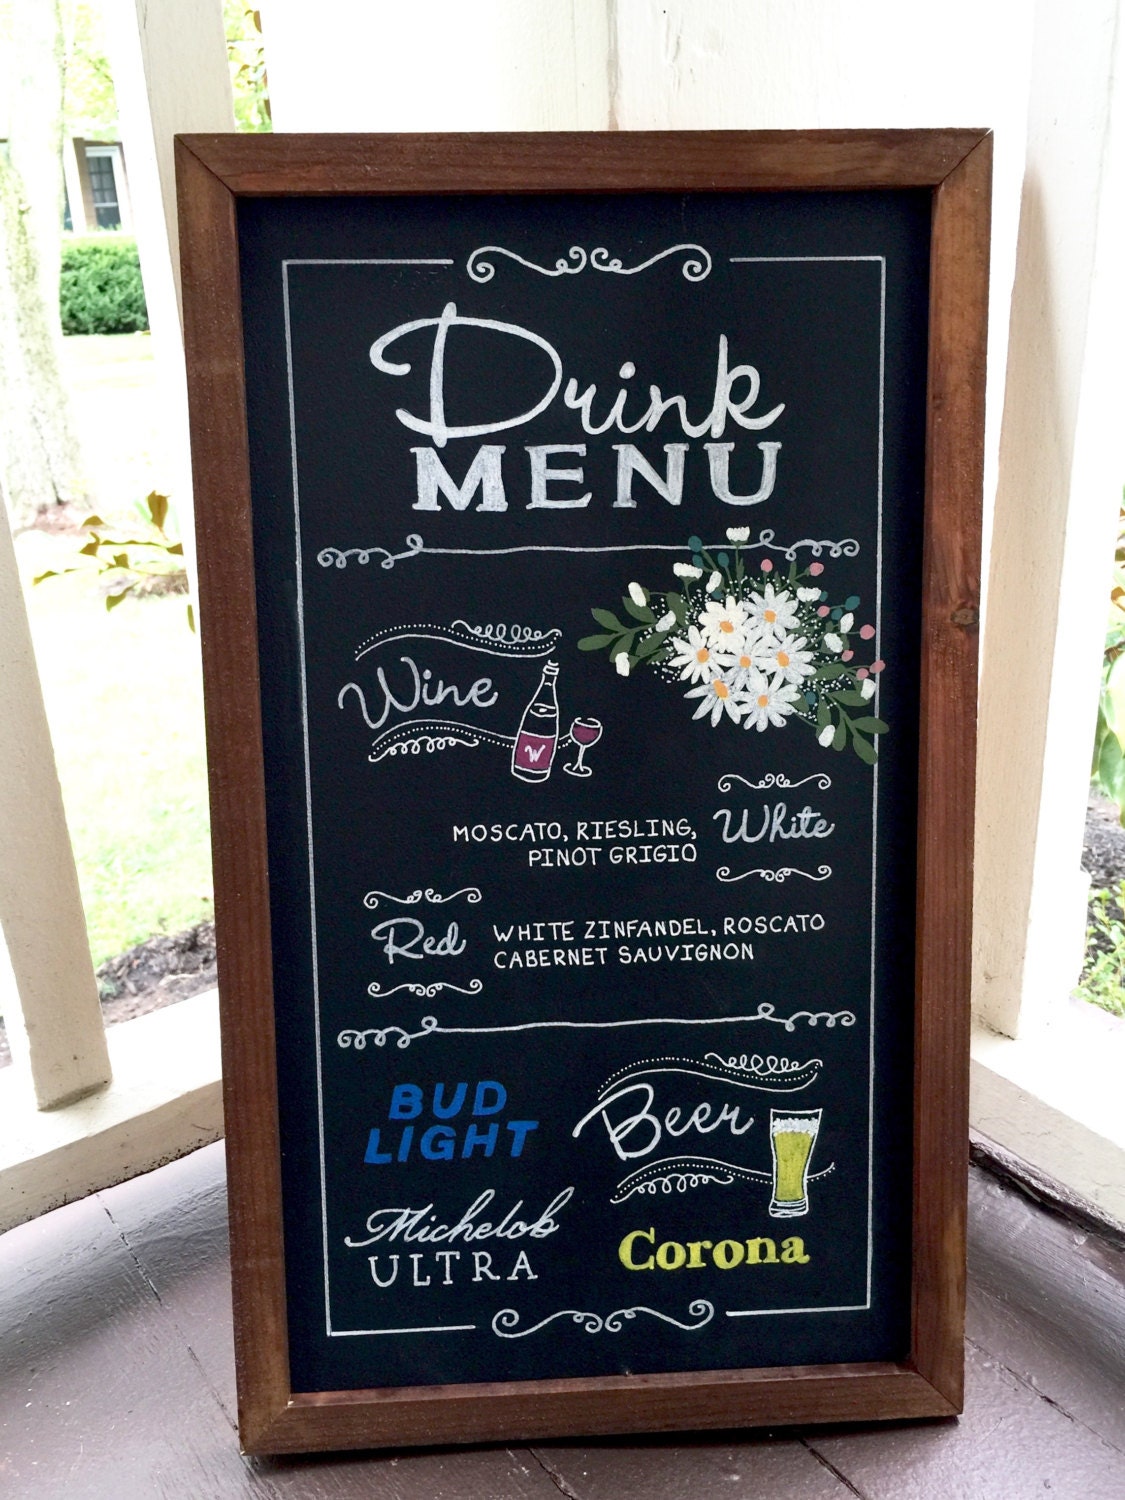 Drink
MENU
Wine
W
MOSCATO, RIESLING,
PINOT GRIGIO
White
Red
WHITE ZINFANDEL, ROSCATO
CABERNET SAUVIGNON
BUD
LIGHT
Beer
Michelob
ULTRA
Corona